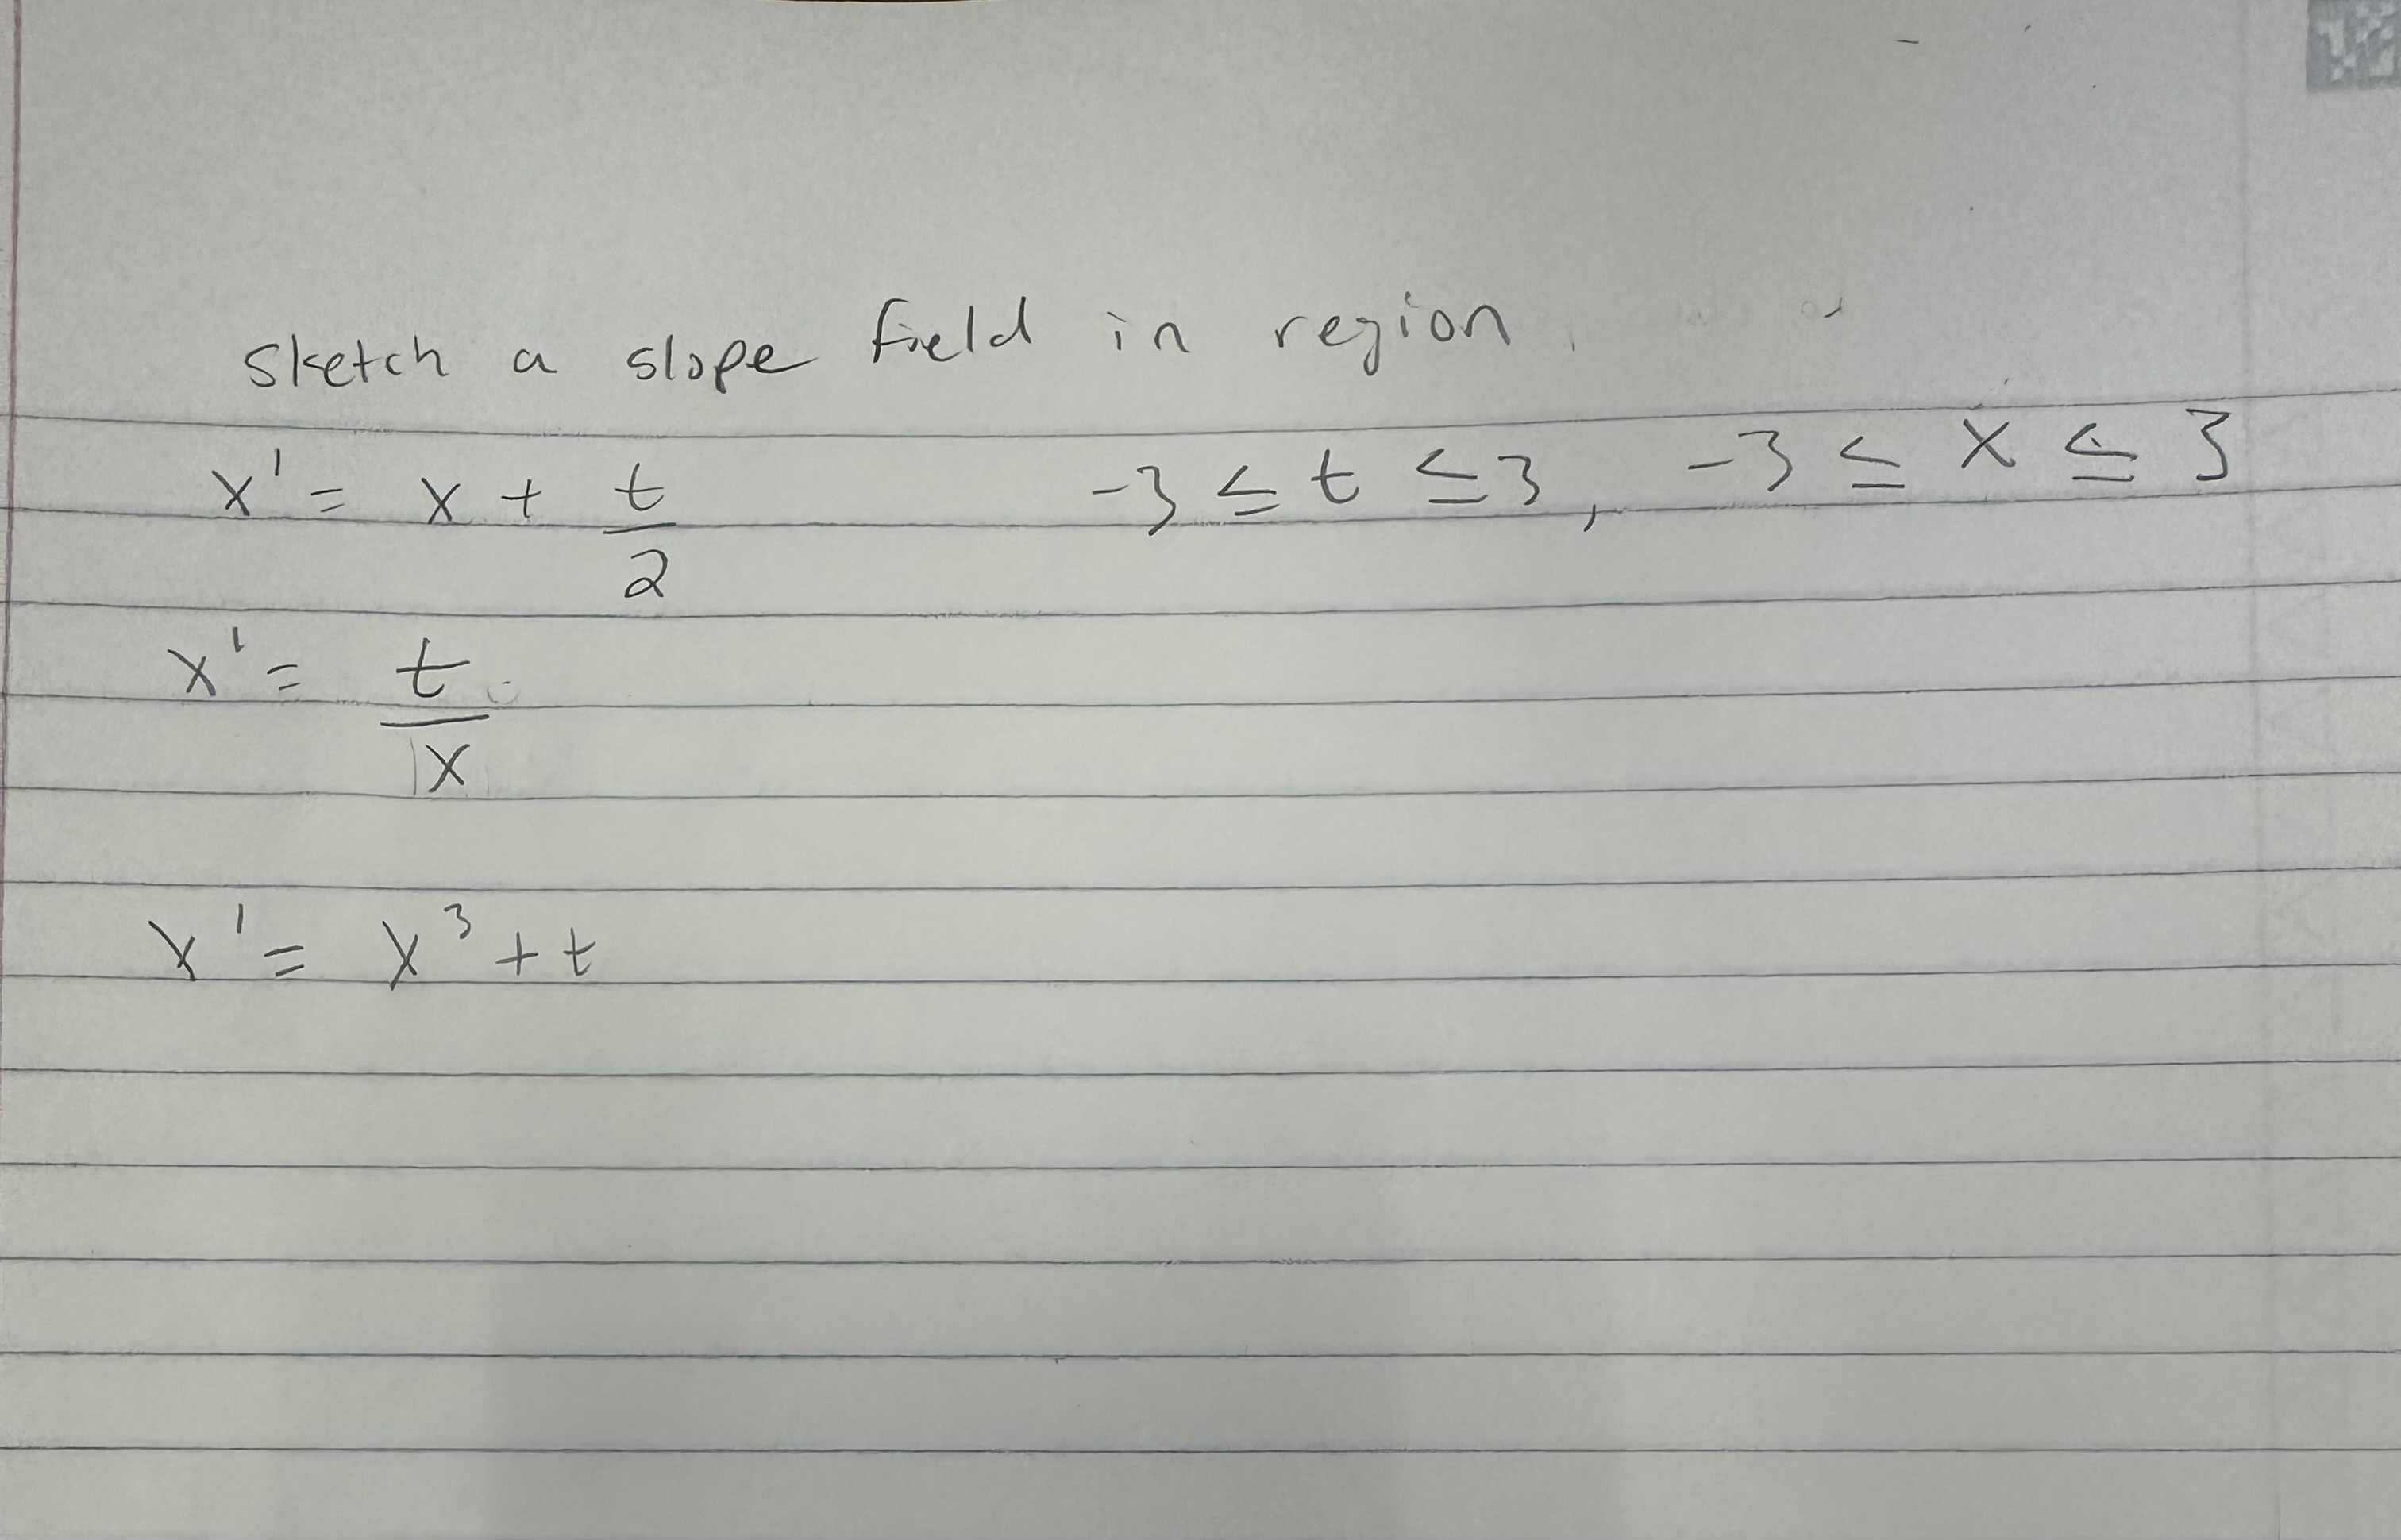 sketch a slope field in region.
x' = x + t/2    -3 ≤ t ≤ 3, -3 ≤ x ≤ 3
x' = t/x
x' = x³ + t